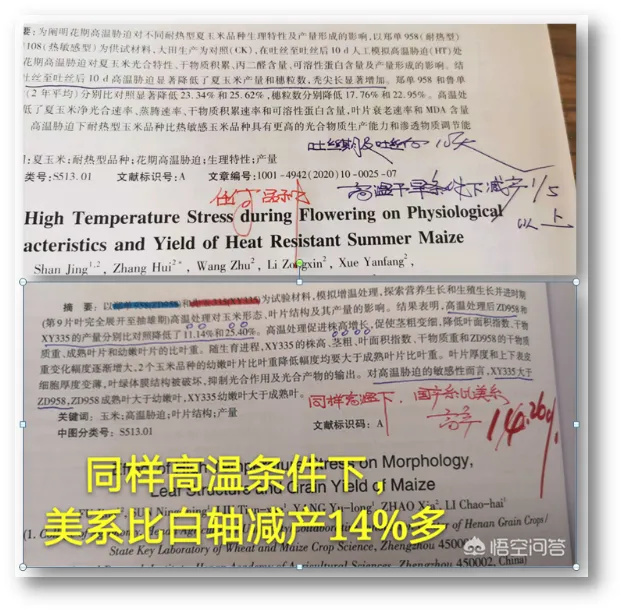 要：为阐明花期高温胁迫对不同耐热型夏玉米品种生理特性及产量形成的影响，以郑单 958（耐热型）
108（热敏感型）为供试材料，大田生产为对照（CK），在吐丝至吐丝后 10 d 人工模拟高温胁迫（HT）处
花期高温胁迫对夏玉米光合特性、干物质积累、丙二醛含量、可溶性蛋白含量及产量形成的影响。结
吐丝至吐丝后 10 d 高温胁迫显著降低了夏玉米产量和穗粒数，秃尖长显著增加。郑单 958 和鲁单
（2 年平均）分别比对照显著降低 23.34% 和 25.62%，穗粒数分别降低 17.76% 和 22.95%。高温处
低了夏玉米净光合速率、蒸腾速率、干物质积累速率和可溶性蛋白含量，叶片衰老速率和 MDA 含量
高温胁迫下耐热型玉米品种比热敏感玉米品种具有更高的光合物质生产能力和渗透物质调节能
吐丝期及吐丝后 10天
：夏玉米；耐热型品种；花期高温胁迫；生理特性；产量
类号：S513.01 文献标识号：A 文章编号：1001-4942(2020)10-0025-07
高温干旱条件下减产 1/5
以上
任何品种
High Temperature Stress during Flowering on Physiological
acteristics and Yield of Heat Resistant Summer Maize
Shan Jing1,2, Zhang Hui2*, Wang Zhu2, Li Zongxin2, Xue Yanfang2,
摘 要：以郑单958(ZD958)和 为试验材料，模拟增温处理，探索营养生长和生殖生长并进时期
(第9片叶完全展开至抽雄期)高温处理对玉米形态、叶片结构及其产量的影响。结果表明，高温处理后ZD958和
XY335的产量分别比对照降低了11.14%和25.40%。高温处理促进株高增长，促使茎粗变细，降低叶面积指数、干物
质重、成熟叶片和幼嫩叶片的比叶重。随生育进程，XY335的株高、茎粗、叶面积指数、干物质重和ZD958的干物质
重变化幅度逐渐增大，2个玉米品种的幼嫩叶片比叶重降低幅度均要大于成熟叶片比叶重。叶片厚度和上下表皮
细胞厚度变薄，叶绿体膜结构被破坏，抑制光合作用及光合产物的输出。对高温胁迫的敏感性而言，XY335大于
ZD958，ZD958成熟叶大于幼嫩叶，XY335幼嫩叶大于成熟叶。
关键词：玉米；高温胁迫；叶片结构；产量
同样高温下，国产系比美系
中图分类号：S513.01 文献标识码：A
高产 14.26%
on Morphology,
Leaf Structure and Grain Yield of Maize
同样高温条件下，
美系比白轴减产14%多
YANG Yu-long, ZHAO Xia, LI Chao-hai
of Henan Grain Crops/
State Key Laboratory of Wheat and Maize Crop Science, Zhengzhou 450002
悟空问答